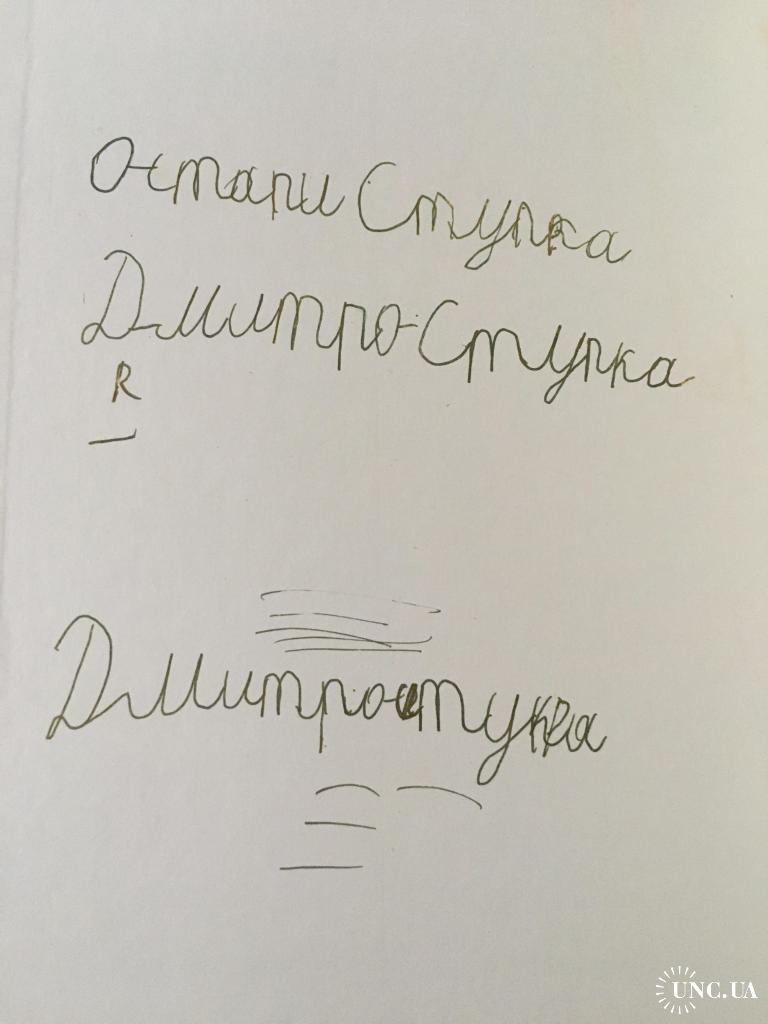 Остапи Ступка
Дмитро Ступка
R
Дмитро ступка
UNC.UA